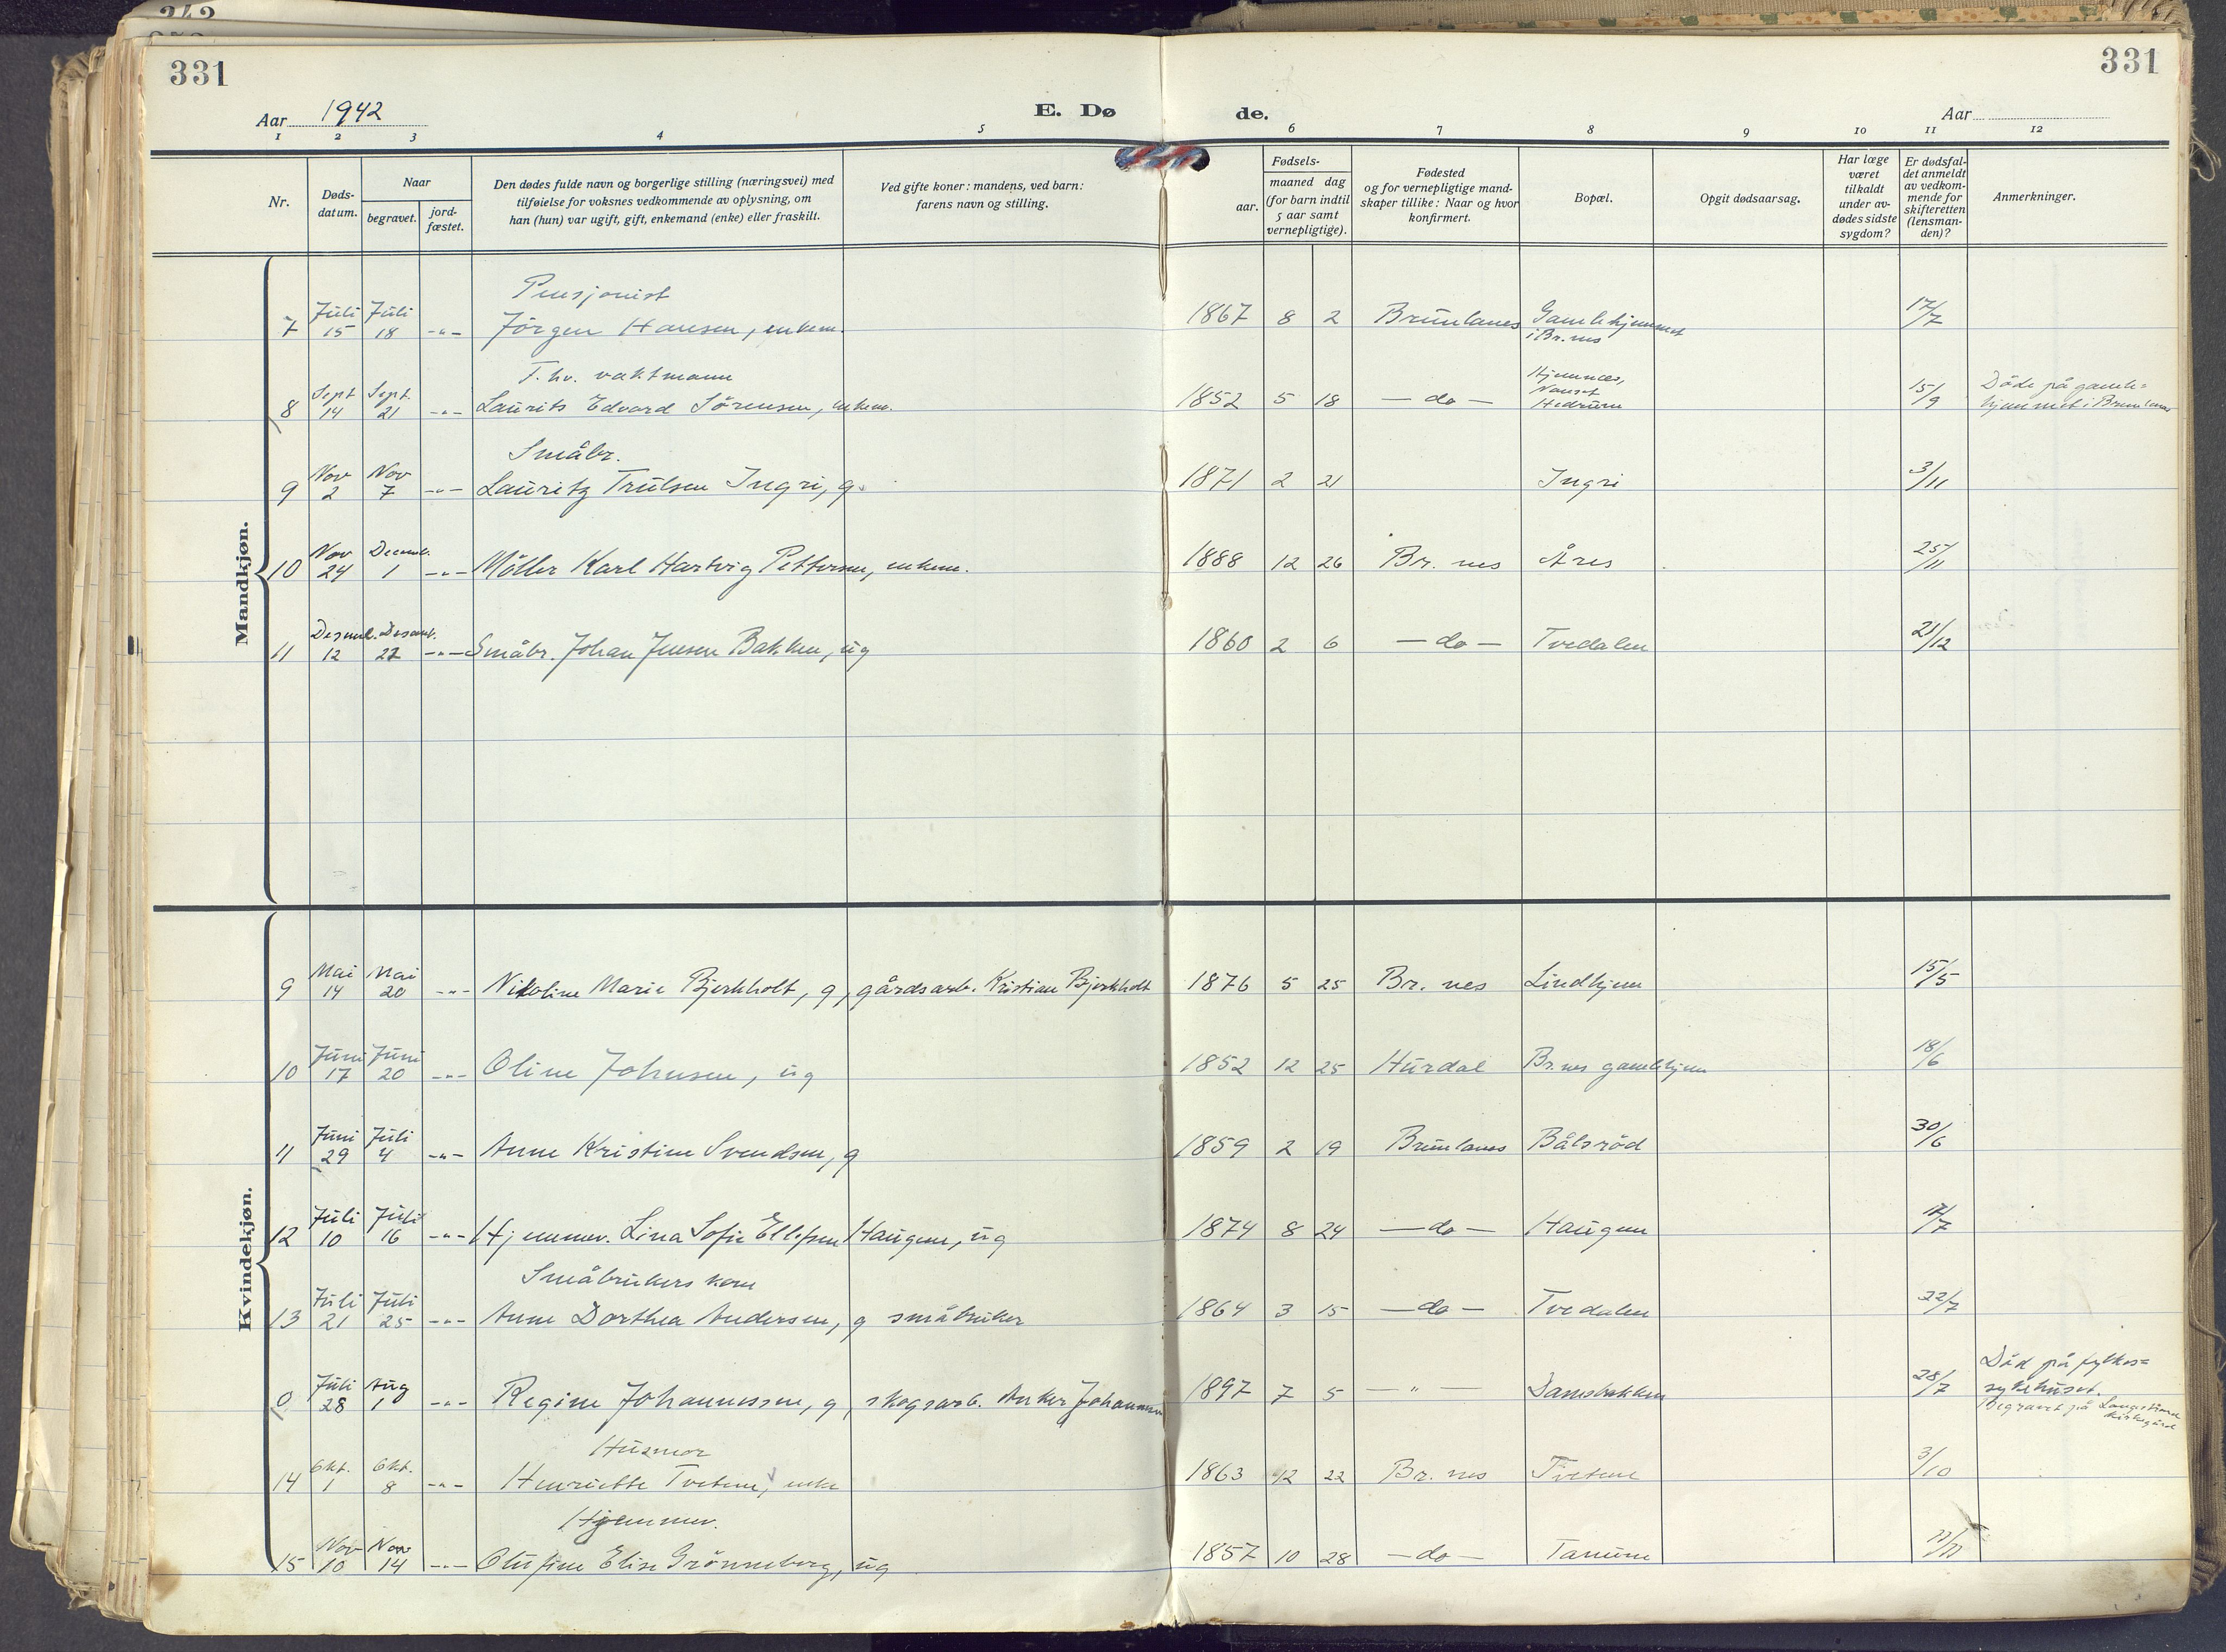 343
331
331
Aar 1942
E. Dø de.
Aar
1 2 3 4 5 6 7 8 9 10 11 12
Nr.
Døds-
datum.
Naar
begravet.
jord-
fæstet.
Den dødes fulde navn og borgerlige stilling (næringsvei) med
tilføielse for voksnes vedkommende av oplysning, om
han (hun) var ugift, gift, enkemand (enke) eller fraskilt.
Ved gifte koner: mandens, ved barn:
farens navn og stilling.
Fødsels-
aar.
maaned dag
(for barn indtil
5 aar samt
vernepligtige).
Fødested
og for vernepligtige mand-
skaper tillike: Naar og hvor
konfirmert.
Bopæl.
Opgit dødsaarsag.
Har læge
været
tilkaldt
under av-
dødes sidste
sygdom?
Er dødsfal-
det anmeldt
av vedkom-
mende for
skifteretten
(lensman-
den)?
Anmerkninger.
Mandkjøn.
Pensjonist
Juli Juli
7 15 18 -"- Jörgen Hansen, enkem. 1867 8 2 Brunlanes Gamlehjemmet 17/7
i Br.nes
T. hv. vaktmann
Hjemnæs,
Sept Sept. Nanset
8 14 21 -"- Laurits Edvard Sörensen, enkem. 1852 5 18 - do - Hedrum 15/9 Döde på gamle=
hjemmet i Brunlanes
Småbr.
Nov Nov
9 2 7 -"- Lauritz Trulsen Ingri, g. 1871 2 21 Ingri 3/11
Nov Decemb.
10 24 1 -"- Möller Karl Hartvig Pettersen, enkem. 1888 12 26 Br. nes Åres 25/11
Desemb. Desemb.
11 12 22 -"- Småbr. Johan Jensen Bakken, ug 1860 2 6 - do - Tvedalen 21/12
Kvindekjøn.
Mai Mai
9 14 20 -"- Nikoline Marie Bjerkholt, g, gårdsarb. Kristian Bjerkholt 1876 5 25 Br. nes Lindhjem 15/5
Juni Juni
10 17 20 -"- Oline Johnsen, ug 1852 12 25 Hurdal Br.nes gamlehjem 18/6
Juni Juli
11 29 4 -"- Anne Kristine Svendsen, g 1859 2 19 Brunlanes Bålsröd 30/6
Juli Juli
12 10 16 -"- Hjemmev. Lina Sofie Ellefsen Haugen, ug 1874 8 24 - do - Haugen
Småbrukers kone
Juli Juli
13 21 25 -"- Anne Dorthea Andersen, g småbruker 1864 3 15 - do - Tvedalen 22/7
Juli Aug
0 28 1 -"- Regine Johannessen, g, skogsarb. Anker Johannessen 1897 7 5 - " - Danebakken 28/7 Död på fylkes=
sykehuset.
Begravet på Langestrand
kirkegård
Husmor
Okt. Okt.
14 1 8 -"- Henriette Tvetene, enke 1863 12 22 Br. nes Tvetene 3/10
Hjemmev.
Nov Nov
15 10 14 -"- Olufine Elise Grönneberg, ug 1857 10 28 - do - Tanum 11/11